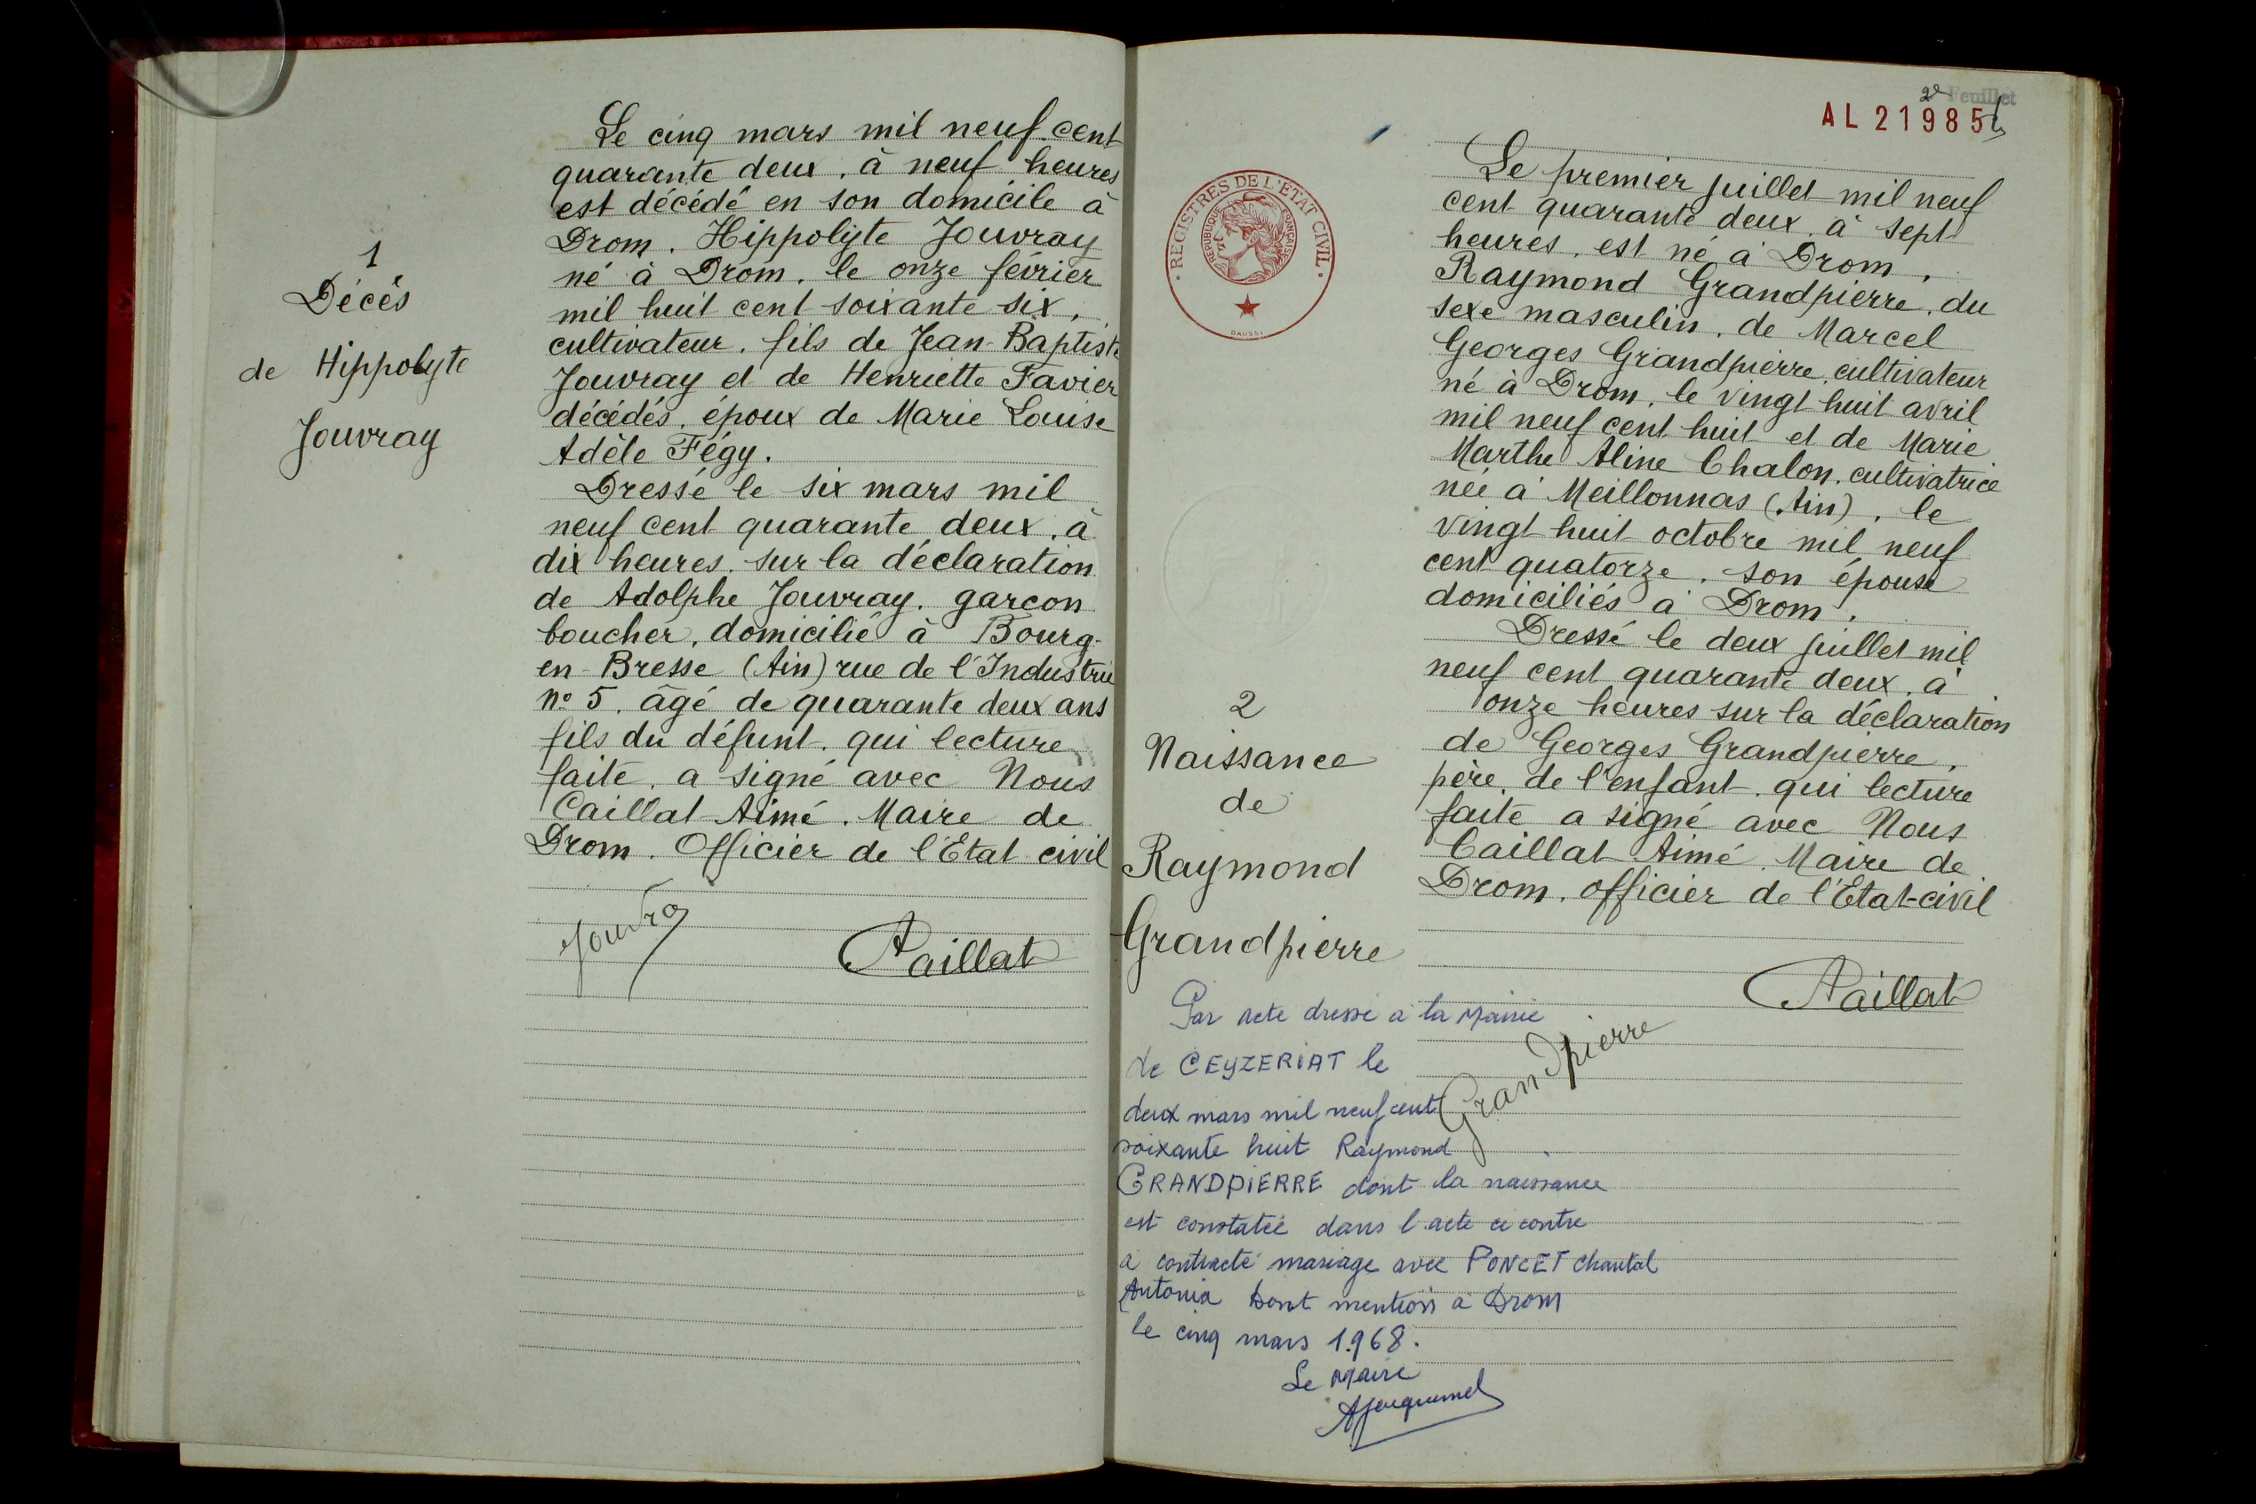 1
Décès
de Hippolyte
Jouvray
Le cinq mars mil neuf cent
quarante deux, à neuf heures
est décédé en son domicile à
Drom. Hippolyte Jouvray
né à Drom, le onze février
mil huit cent soixante six,
cultivateur, fils de Jean-Baptiste
Jouvray et de Henriette Favier
décédés, époux de Marie Louise
Adèle Fégy.
Dressé le six mars mil
neuf cent quarante deux, à
dix heures, sur la déclaration
de Adolphe Jouvray, garcon
boucher, domicilié à Bourg-
en-Bresse (Ain) rue de l'Industrie
no 5, âgé de quarante deux ans
fils du défunt, qui lecture
faite, a signé avec Nous
Caillat Aimé. Maire de
Drom. Officier de l'Etat civil
Jouvray
Caillat
2e Feuillet
AL 21985
REGISTRES DE L'ETAT CIVIL
REPUBLIQUE FRANÇAISE
DAUSSI
Le premier juillet mil neuf
cent quarante deux, à sept
heures, est né à Drom,
Raymond Grandpierre, du
sexe masculin, de Marcel
Georges Grandpierre, cultivateur
né à Drom, le vingt huit avril
mil neuf cent huit et de Marie
Marthe Aline Chalon, cultivatrice
née à Meillonnas (Ain), le
vingt huit octobre mil neuf
cent quatorze, son épouse
domiciliés à Drom.
Dressé le deux juillet mil
neuf cent quarante deux, à
onze heures sur la déclaration
de Georges Grandpierre,
père de l'enfant, qui lecture
faite a signé avec Nous
Caillat Aimé Maire de
Drom, officier de l'Etat-civil
Caillat
Grandpierre
2
Naissance
de
Raymond
Grandpierre
Par acte dressé à la Mairie
de CEYZERIAT le
deux mars mil neuf cent
soixante huit Raymond
GRANDPIERRE dont la naissance
est constatée dans l'acte ci contre
a contracté mariage avec PONCET Chantal
Antonia Dont mention à Drom
le cinq mars 1968.
Le Maire